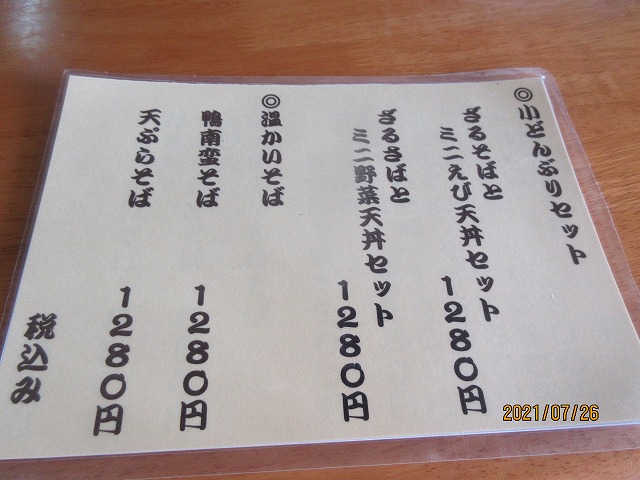 ◎小どんぶりセット
ざるそばと
ミニえび天丼セット
1280円
ざるさばと
ミニ野菜天丼セット
1280円
◎温かいそば
鴨南蛮そば
1280円
天ぷらそば
1280円
税込み
2021/07/26